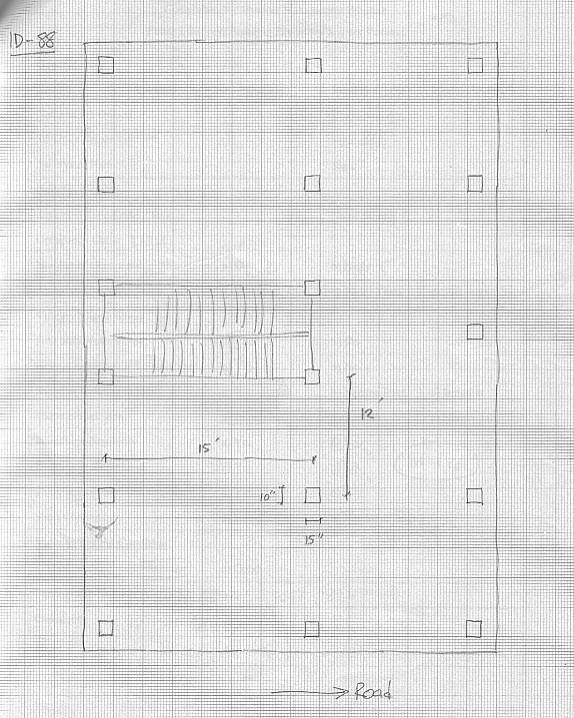 ID-88
12'
15'
10"
15"
Road